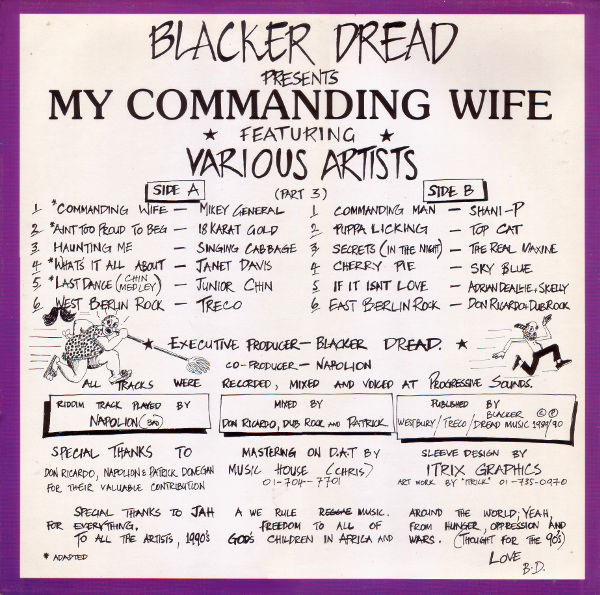 BLACKER DREAD
PRESENTS
MY COMMANDING WIFE
★ FEATURING ★
VARIOUS ARTISTS
SIDE A
(PART 3)
SIDE B
1 *COMMANDING WIFE — MIKEY GENERAL
2 *AINT TOO PROUD TO BEG — 18 KARAT GOLD
3 HAUNTING ME — SINGING CABBAGE
4 *WHATS IT ALL ABOUT — JANET DAVIS
5 *LAST DANCE (CHIN MEDLEY) — JUNIOR CHIN
6 WEST BERLIN ROCK — TRECO
1 COMMANDING MAN — SHANI-P
2 PUPPA LICKING — TOP CAT
3 SECRETS (IN THE NIGHT) — THE REAL MAXINE
4 CHERRY PIE — SKY BLUE
5 IF IT ISNT LOVE — ADRIAN DEALLIE & SKELLY
6 EAST BERLIN ROCK — DON RICARDO & DUB ROCK
★ EXECUTIVE PRODUCER — BLACKER DREAD. ★
CO-PRODUCER — NAPOLION
ALL TRACKS WERE RECORDED, MIXED AND VOICED AT PROGRESSIVE SOUNDS.
RIDDIM TRACK PLAYED BY
NAPOLION
MIXED BY
DON RICARDO, DUB ROCK AND PATRICK
PUBLISHED BY
WESTBURY/TRECO/BLACKER DREAD MUSIC 1989/90 © ℗
SPECIAL THANKS TO
DON RICARDO, NAPOLION & PATRICK DONEGAN
FOR THEIR VALUABLE CONTRIBUTION
MASTERING ON D.A.T BY
MUSIC HOUSE (CHRIS)
01-704-7701
SLEEVE DESIGN BY
ITRIX GRAPHICS
ART WORK BY "ITRICK" 01-735-0970
SPECIAL THANKS TO JAH
FOR EVERYTHING,
TO ALL THE ARTISTS, 1990's
A WE RULE REGGAE MUSIC.
FREEDOM TO ALL OF
GOD'S CHILDREN IN AFRICA AND
AROUND THE WORLD; YEAH,
FROM HUNGER, OPPRESSION AND
WARS. (THOUGHT FOR THE 90's)
LOVE
B.D.
* ADAPTED